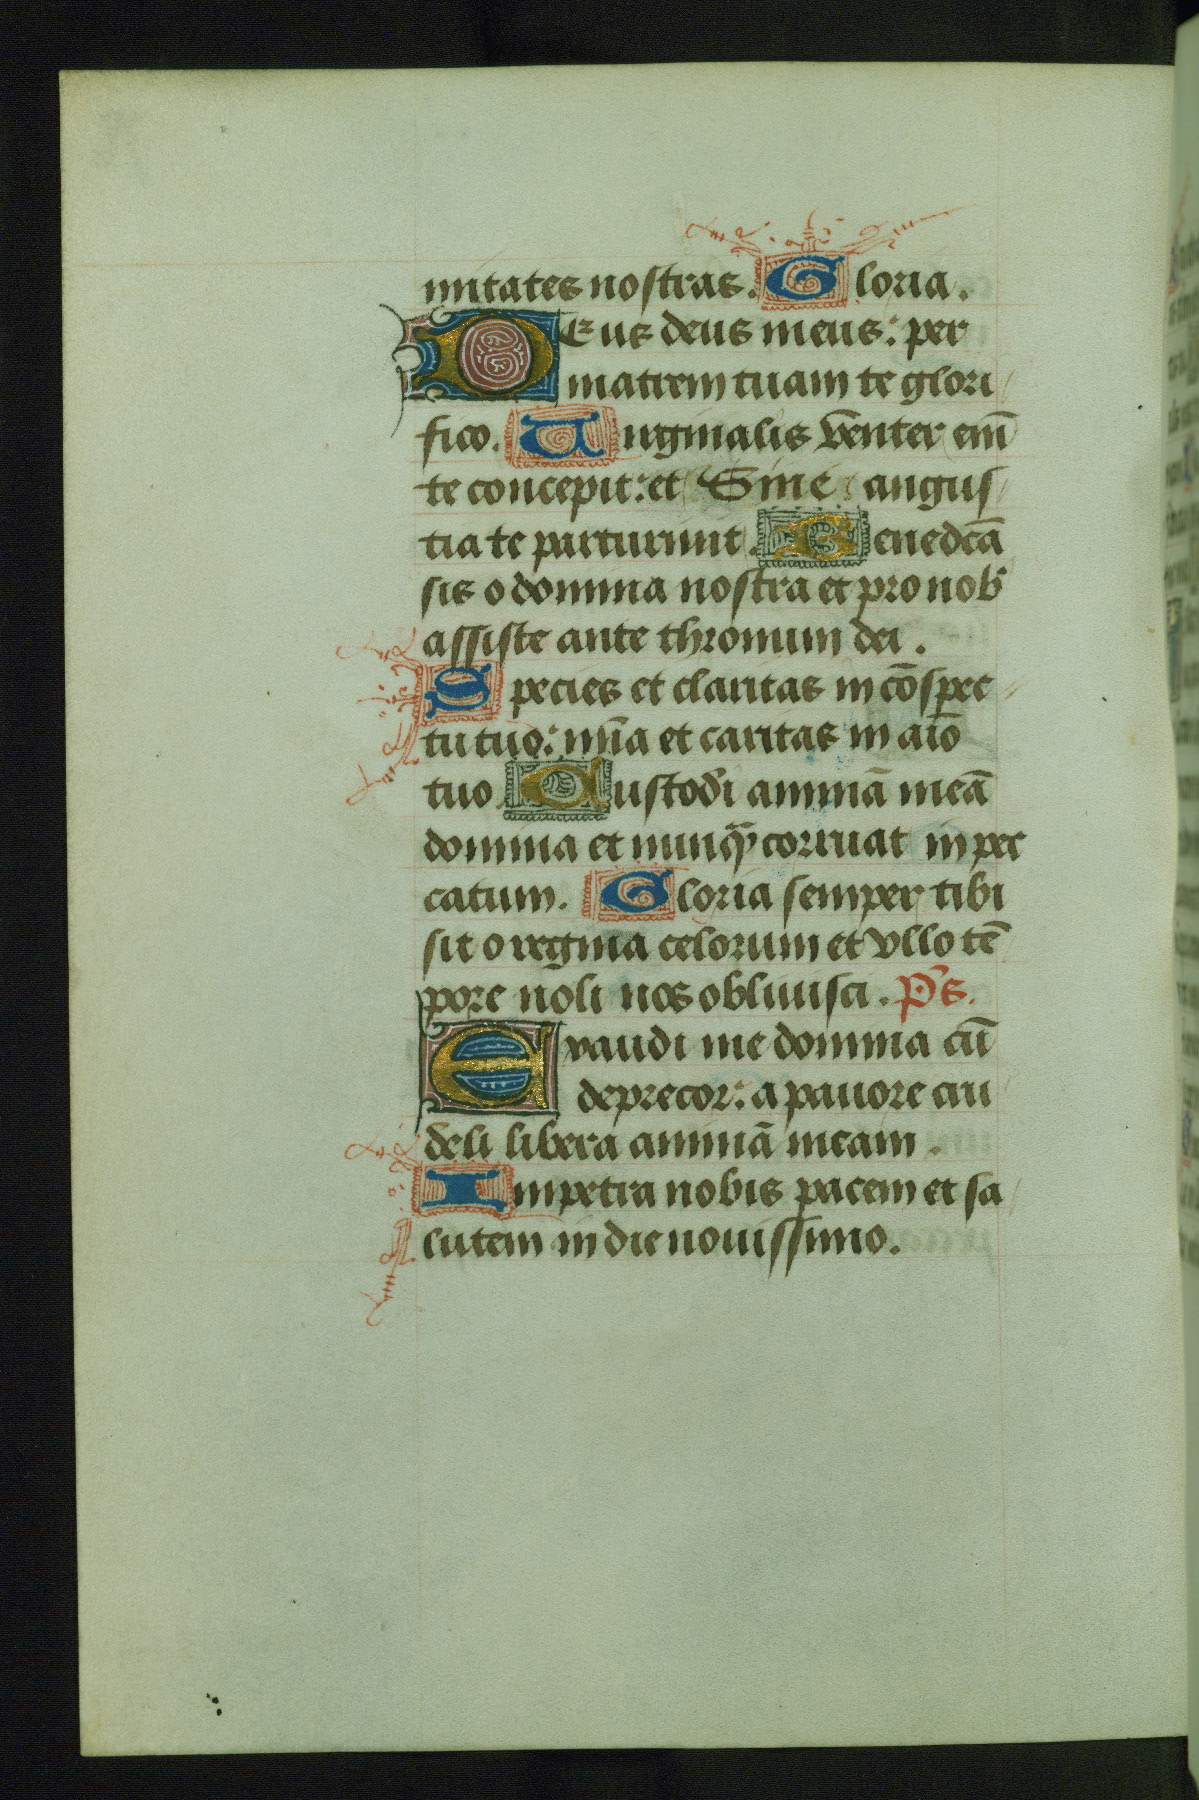 nitates nostras. Gloria.
Deus deus meus: per
matrem tuam te glori
fico. Virginalis venter em̄
te concepit: et Sine angus
tia te parturiuit. Benedcā
sis o domina nostra et pro nob
assiste ante thronum dei.
Species et claritas in cōspec
tu tuo: mīa et caritas in aīo
tuo Custodi animā meā
domina et nunq̄ corruat in pec
catum. Gloria semper tibi
sit o regina celorum et vllo tē
pore noli nos obliuisci. P̄s.
Exaudi me domina cū
deprecor: a pauore cru
deli libera animā meam.
Impetra nobis pacem et sa
lutem in die nouissimo.